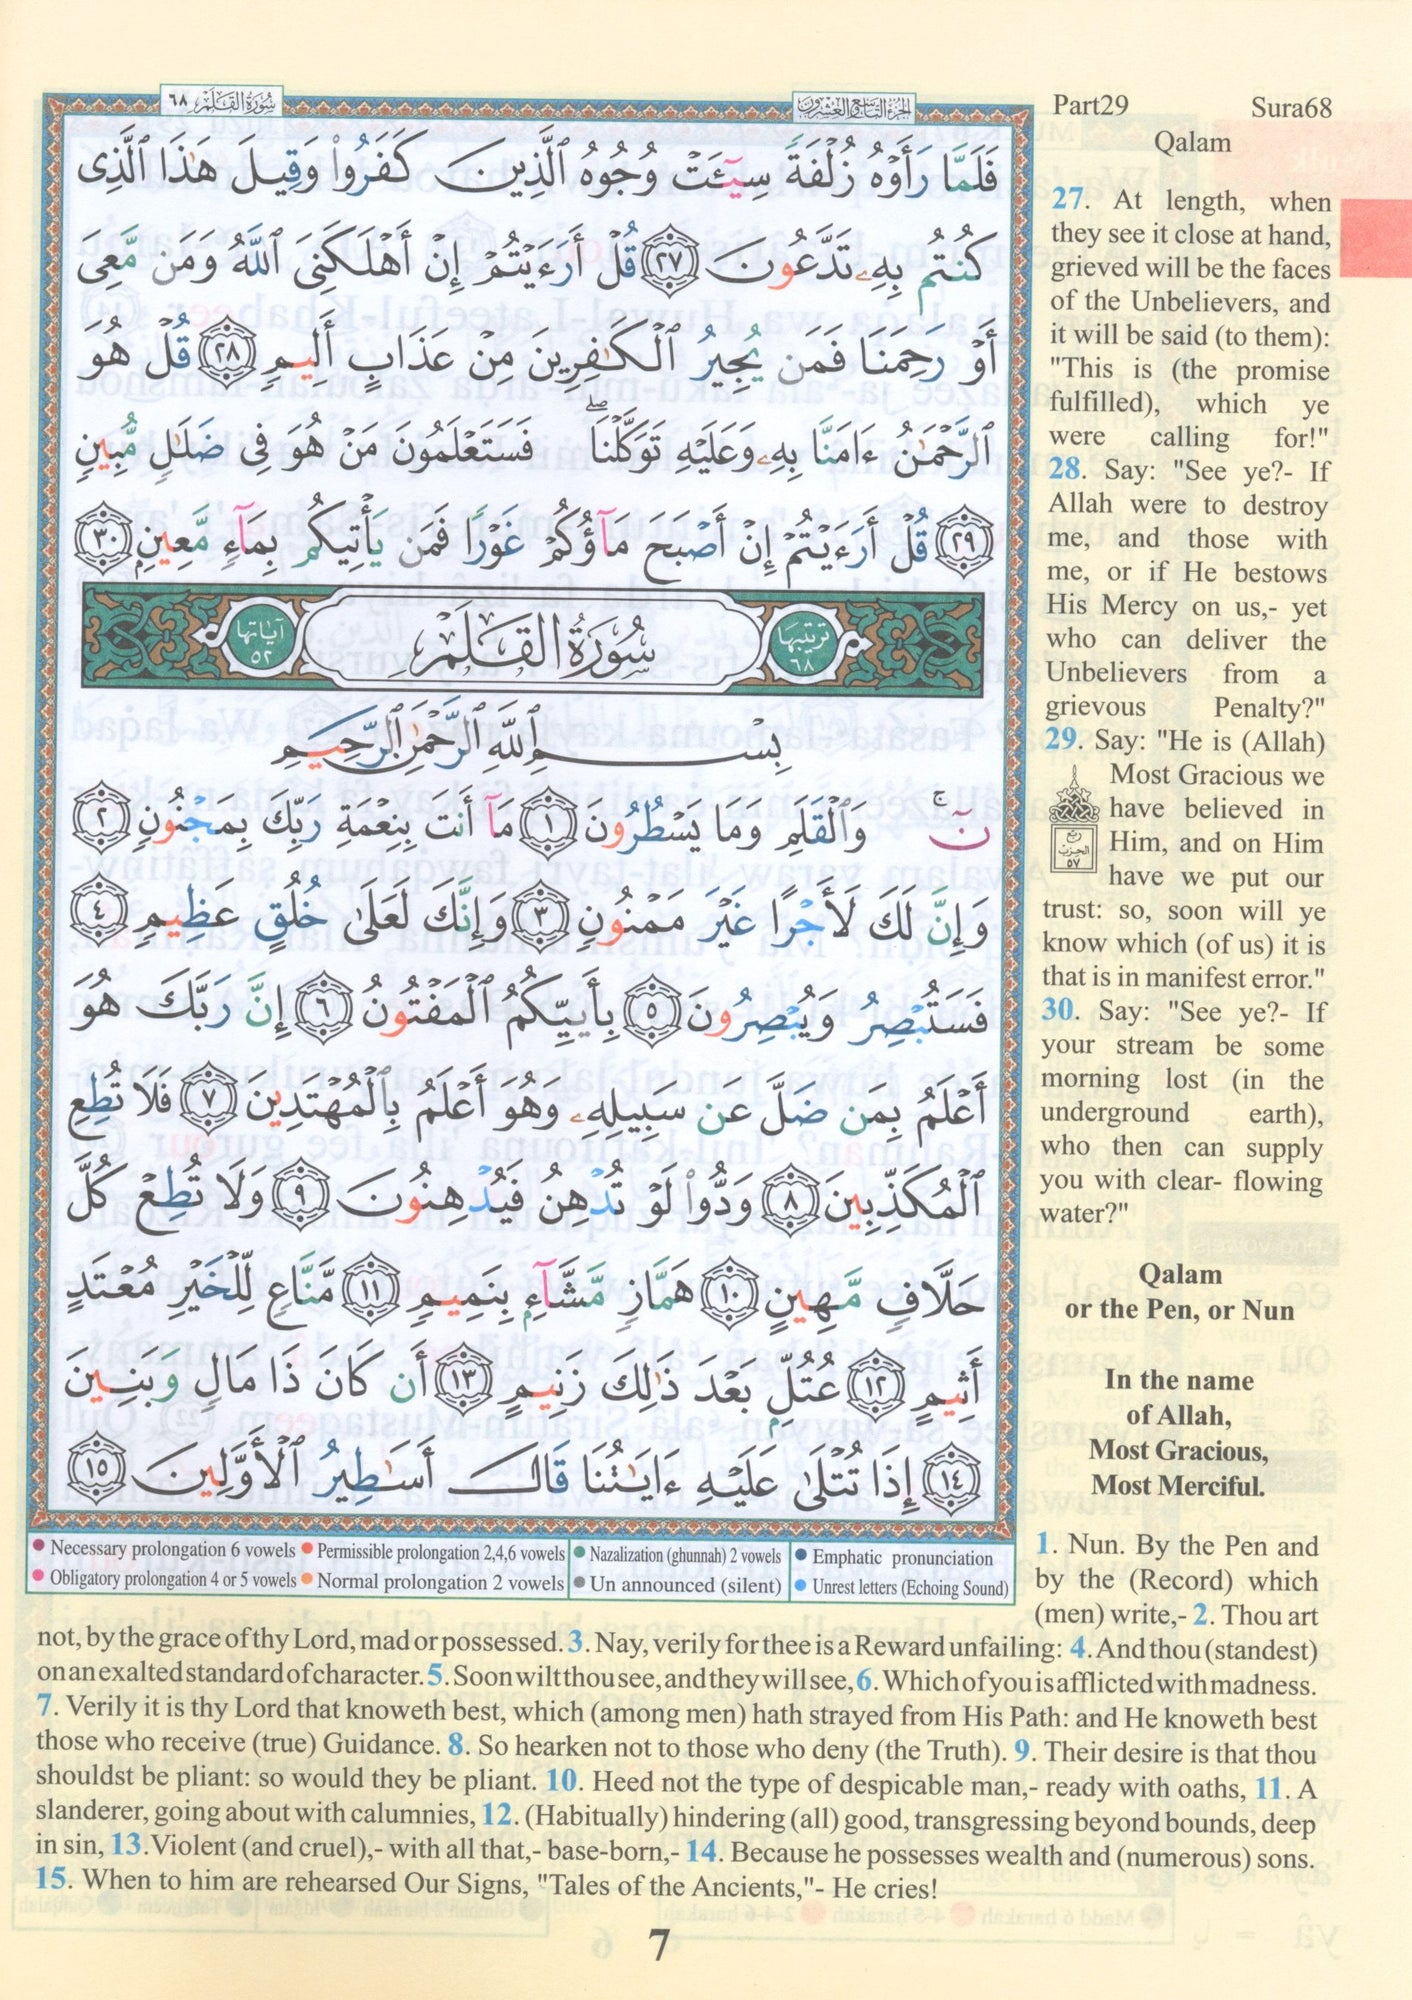 سُورَةُ القَلَمِ ٦٨
الجزء التاسع والعشرون
Part29 Sura68
Qalam
فَلَمَّا رَأَوْهُ زُلْفَةً سِيٓـَٔتْ وُجُوهُ ٱلَّذِينَ كَفَرُوا۟ وَقِيلَ هَٰذَا ٱلَّذِى
كُنتُم بِهِۦ تَدَّعُونَ ٢٧ قُلْ أَرَءَيْتُمْ إِنْ أَهْلَكَنِىَ ٱللَّهُ وَمَن مَّعِىَ
أَوْ رَحِمَنَا فَمَن يُجِيرُ ٱلْكَٰفِرِينَ مِنْ عَذَابٍ أَلِيمٍ ٢٨ قُلْ هُوَ
ٱلرَّحْمَٰنُ ءَامَنَّا بِهِۦ وَعَلَيْهِ تَوَكَّلْنَا ۖ فَسَتَعْلَمُونَ مَنْ هُوَ فِى ضَلَٰلٍ مُّبِينٍ
٢٩ قُلْ أَرَءَيْتُمْ إِنْ أَصْبَحَ مَآؤُكُمْ غَوْرًا فَمَن يَأْتِيكُم بِمَآءٍ مَّعِينٍۭ ٣٠
ترتيبها ٦٨
سُورَةُ القَلَمِ
آياتها ٥٢
بِسْمِ ٱللَّهِ ٱلرَّحْمَٰنِ ٱلرَّحِيمِ
نٓ ۚ وَٱلْقَلَمِ وَمَا يَسْطُرُونَ ١ مَآ أَنتَ بِنِعْمَةِ رَبِّكَ بِمَجْنُونٍ ٢
وَإِنَّ لَكَ لَأَجْرًا غَيْرَ مَمْنُونٍ ٣ وَإِنَّكَ لَعَلَىٰ خُلُقٍ عَظِيمٍ ٤
فَسَتُبْصِرُ وَيُبْصِرُونَ ٥ بِأَييِّكُمُ ٱلْمَفْتُونُ ٦ إِنَّ رَبَّكَ هُوَ
أَعْلَمُ بِمَن ضَلَّ عَن سَبِيلِهِۦ وَهُوَ أَعْلَمُ بِٱلْمُهْتَدِينَ ٧ فَلَا تُطِعِ
ٱلْمُكَذِّبِينَ ٨ وَدُّوا۟ لَوْ تُدْهِنُ فَيُدْهِنُونَ ٩ وَلَا تُطِعْ كُلَّ
حَلَّافٍ مَّهِينٍ ١٠ هَمَّازٍ مَّشَّآءٍۭ بِنَمِيمٍ ١١ مَّنَّاعٍ لِّلْخَيْرِ مُعْتَدٍ
أَثِيمٍ ١٢ عُتُلٍّۭ بَعْدَ ذَٰلِكَ زَنِيمٍ ١٣ أَن كَانَ ذَا مَالٍ وَبَنِينَ
١٤ إِذَا تُتْلَىٰ عَلَيْهِ ءَايَٰتُنَا قَالَ أَسَٰطِيرُ ٱلْأَوَّلِينَ ١٥
Necessary prolongation 6 vowels Permissible prolongation 2,4,6 vowels Nazalization (ghunnah) 2 vowels Emphatic pronunciation
Obligatory prolongation 4 or 5 vowels Normal prolongation 2 vowels Un announced (silent) Unrest letters (Echoing Sound)
27. At length, when
they see it close at hand,
grieved will be the faces
of the Unbelievers, and
it will be said (to them):
"This is (the promise
fulfilled), which ye
were calling for!"
28. Say: "See ye?- If
Allah were to destroy
me, and those with
me, or if He bestows
His Mercy on us,- yet
who can deliver the
Unbelievers from a
grievous Penalty?"
29. Say: "He is (Allah)
Most Gracious we
have believed in
Him, and on Him
have we put our
trust: so, soon will ye
know which (of us) it is
that is in manifest error."
ربع
الحزب
٥٧
30. Say: "See ye?- If
your stream be some
morning lost (in the
underground earth),
who then can supply
you with clear- flowing
water?"
Qalam
or the Pen, or Nun
In the name
of Allah,
Most Gracious,
Most Merciful.
1. Nun. By the Pen and
by the (Record) which
(men) write,- 2. Thou art
not, by the grace of thy Lord, mad or possessed. 3. Nay, verily for thee is a Reward unfailing: 4. And thou (standest)
on an exalted standard of character. 5. Soon wilt thou see, and they will see, 6. Which of you is afflicted with madness.
7. Verily it is thy Lord that knoweth best, which (among men) hath strayed from His Path: and He knoweth best
those who receive (true) Guidance. 8. So hearken not to those who deny (the Truth). 9. Their desire is that thou
shouldst be pliant: so would they be pliant. 10. Heed not the type of despicable man,- ready with oaths, 11. A
slanderer, going about with calumnies, 12. (Habitually) hindering (all) good, transgressing beyond bounds, deep
in sin, 13. Violent (and cruel),- with all that,- base-born,- 14. Because he possesses wealth and (numerous) sons.
15. When to him are rehearsed Our Signs, "Tales of the Ancients,"- He cries!
7